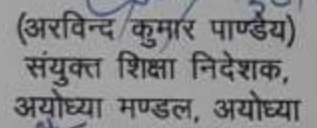 (अरविन्द कुमार पाण्डेय)
संयुक्त शिक्षा निदेशक,
अयोध्या मण्डल, अयोध्या